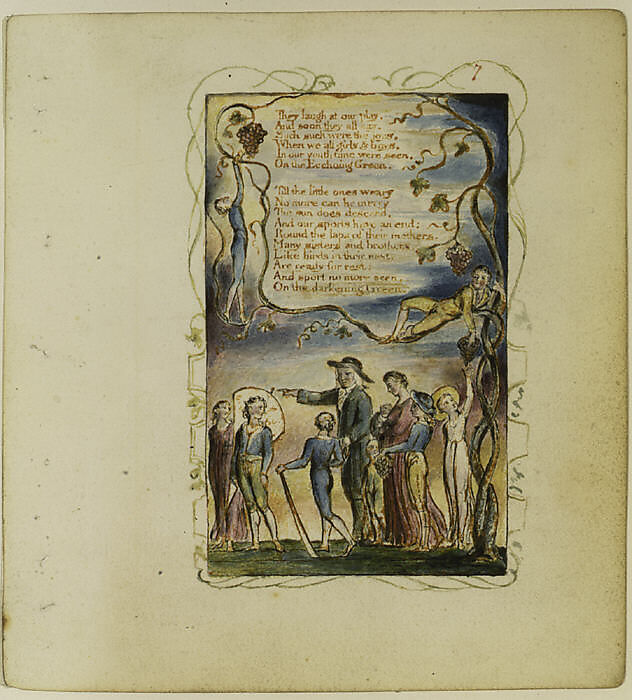 7
They laugh at our play,
And soon they all say.
Such such were the joys.
When we all girls & boys,
In our youth-time were seen,
On the Ecchoing Green.
Till the little ones weary
No more can be merry
The sun does descend,
And our sports have an end:
Round the laps of their mothers,
Many sisters and brothers,
Like birds in their nest,
Are ready for rest:
And sport no more seen,
On the darkening Green.